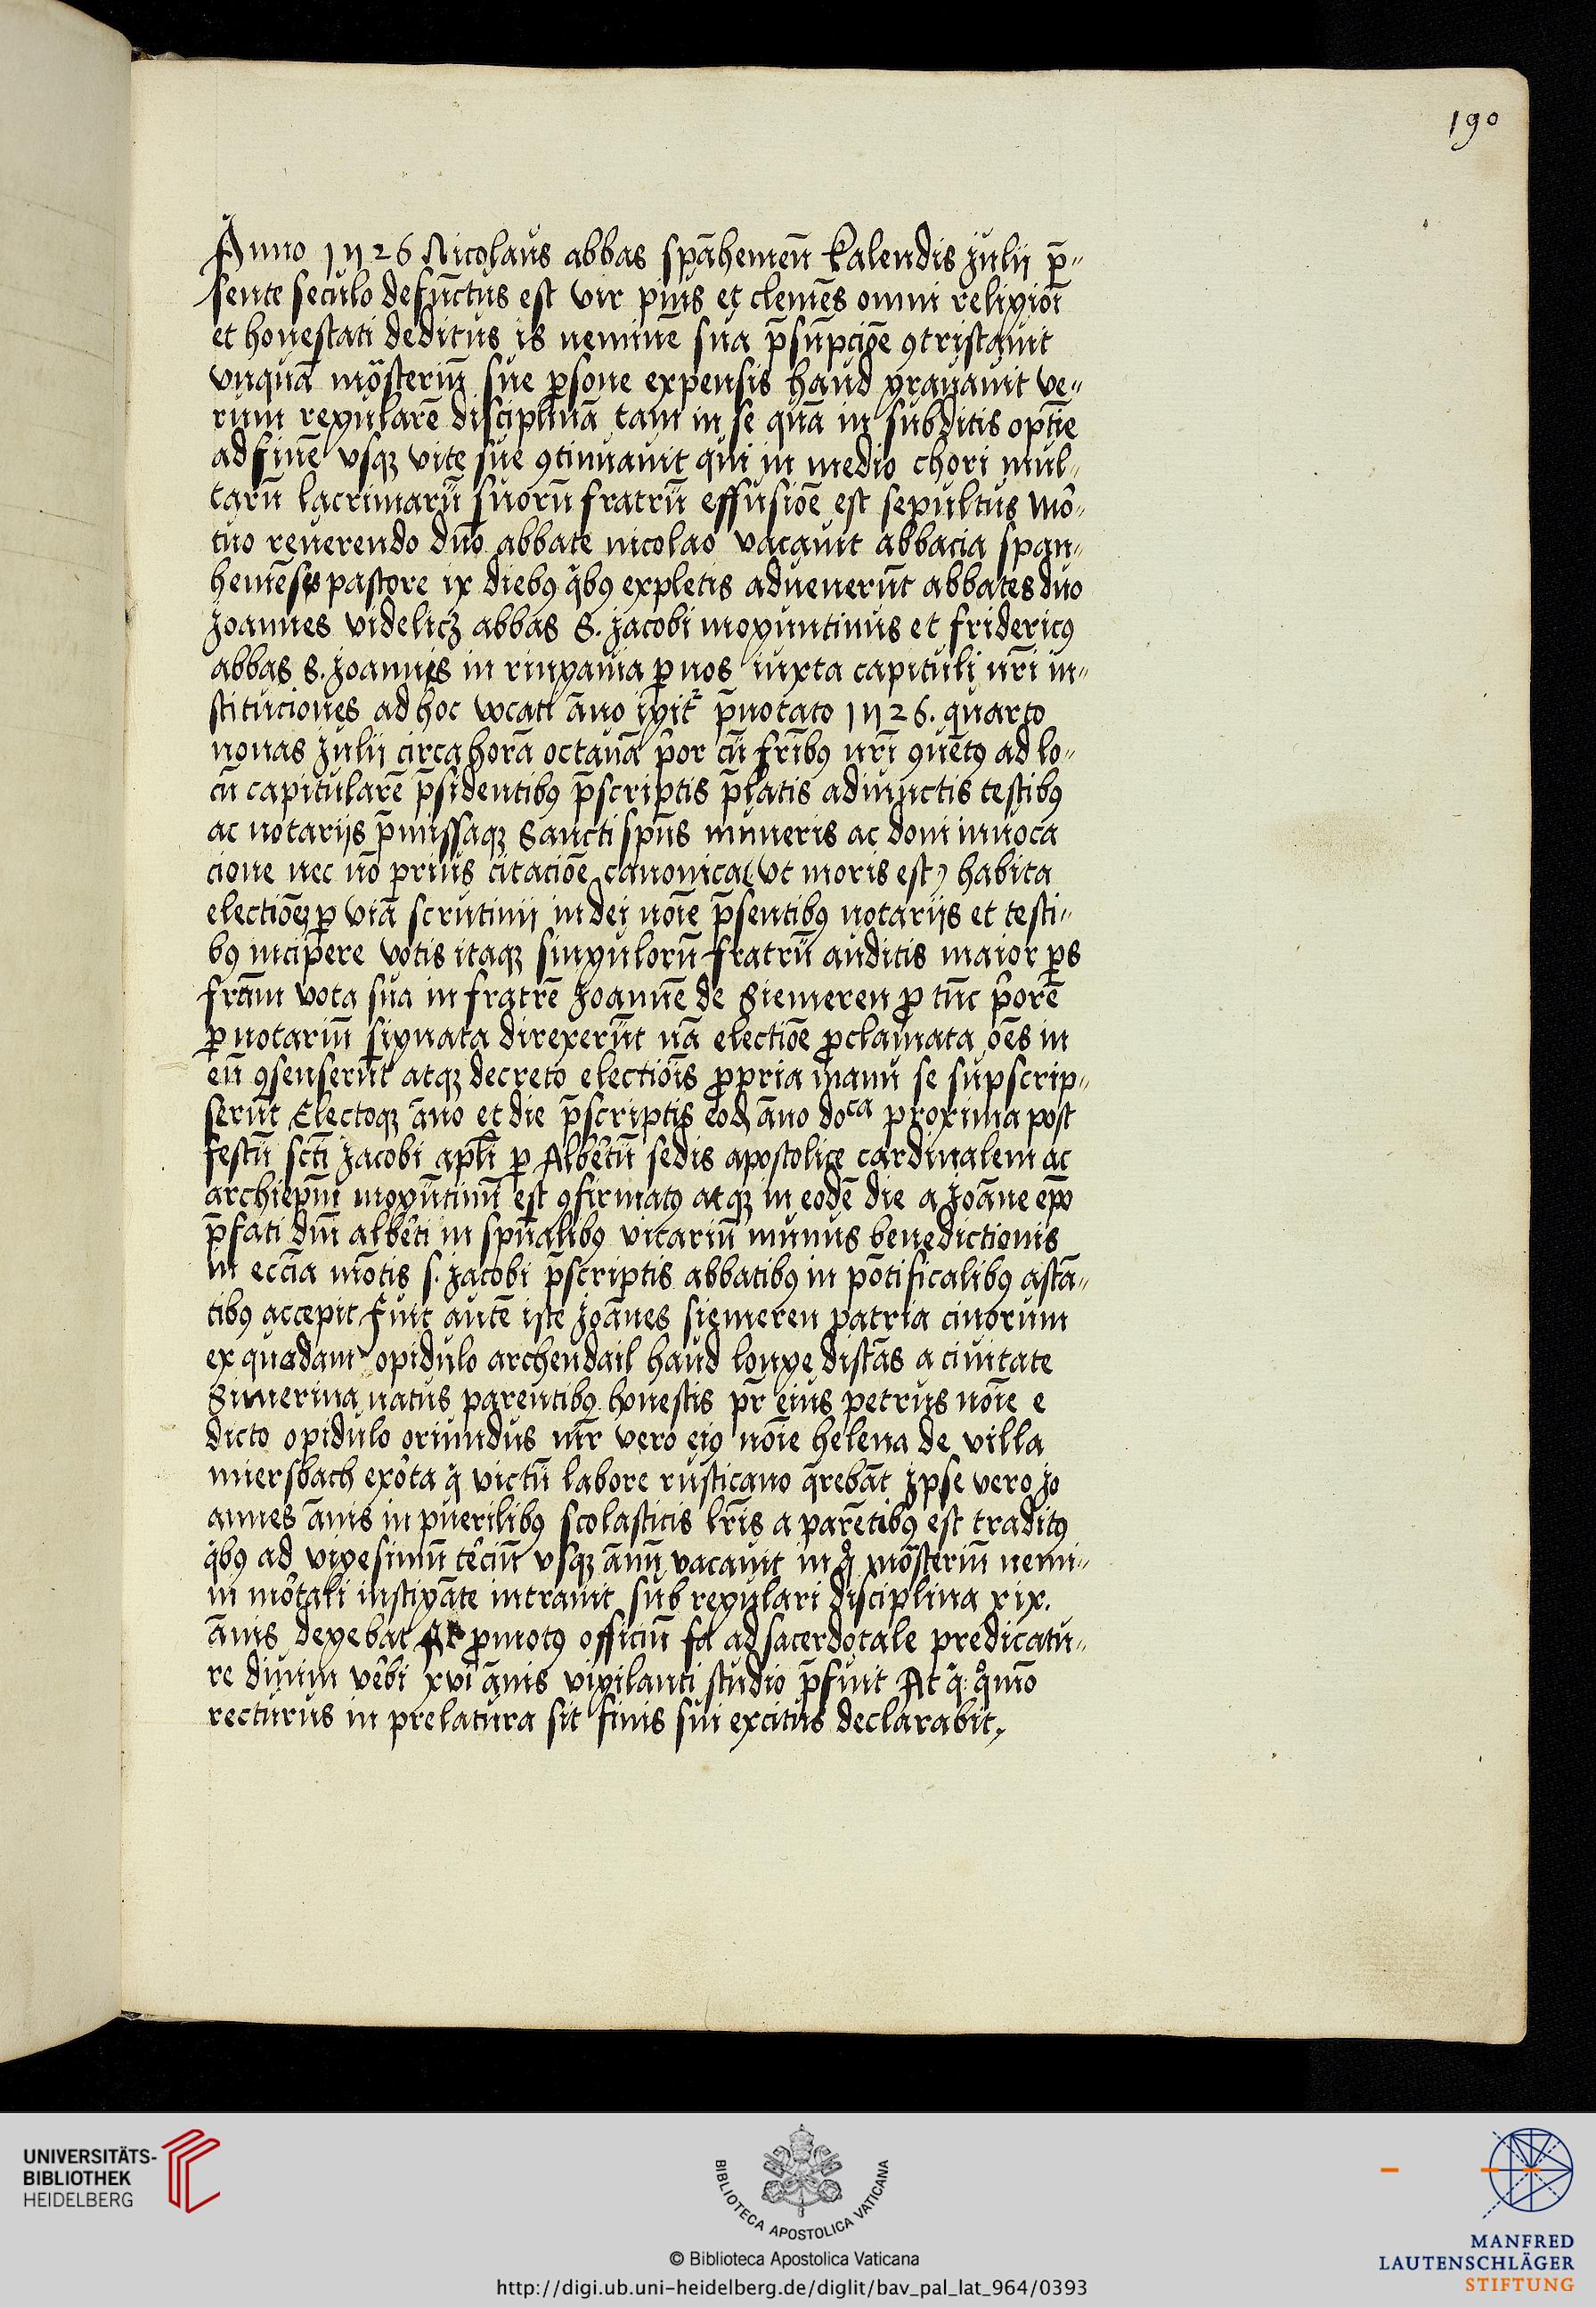 190
Anno 1526 Nicolaus abbas spāhemeñ kalendis Julii p̄-
sente seculo defūctus est vir pius et clemēs omni religioi
et honestati deditus is neminē sua p̄sūpciōe ꝯtristauit
vnquā mōsteriū sue ꝑsone expensis haud grauauit ve-
rum regularē disciplinā tam in se quā in subditis optīe
ad finē vsqꝫ vite sue ꝯtinuauit qui in medio chori mul-
tarū lacrimarū suorū fratrū effusiōe est sepultus Mor-
tuo reuerendo dūo abbate nicolao vacauit abbacia span-
hemēsis pastore ix diebꝰ qͥbꝰ expletis aduenerūt abbates duo
Joannes videlicꝫ abbas S. Jacobi moguntinus et fridericꝰ
abbas S. Joannis in ringauia ꝑ nos iuxta capituli nr̄i in-
stituciones ad hoc vocati āno igit᷑ p̄notato 1526. quarto
nonas Julii circa horā octauā p̄or cū fr̄ibꝰ nr̄i ꝯuētꝰ ad lo-
cū capitularē p̄sidentibꝰ p̄scriptis p̄latis adiunctis testibꝰ
ac notariis p̄missaqꝫ Sancti spūs muneris ac doni inuoca
cione nec nō prius citaciōe canonica (vt moris est) habita
electiōeꝫ ꝑ viā scrutinii in dei noīe p̄sentibꝰ notariis et testi-
bꝰ incipere votis itaqꝫ singulorū fratrū auditis maior ꝑs
fratrum vota sua in fratrē Joannē de Siemeren ꝓ tūc p̄orē
ꝑ notariū signata direxerūt nā electiōe ꝓclamata oēs in
eū ꝯsenserūt atqꝫ decreto electiōis ꝓpria manu se supscrip-
serūt Electoqꝫ āno et die p̄scriptis eod āno doᶜᵃ proxima post
festū scti Jacobi apl̄i ꝑ Albertū sedis apostolice cardinalem ac
archiepm̄ mogūtinū est ꝯfirmatꝰ atqꝫ in eodē die a Joāne epō
p̄fati dn̄i alberti in spūalibꝰ vicariū munus benedictionis
in eccīa mōtis s. Jacobi p̄scriptis abbatibꝰ in pōtificalibꝰ astā-
tibꝰ accepit fuit autē iste Joānes siemeren patria cinorum
ex quadam opidulo archendail haud longe distās a ciuitate
Simerina natus parentibꝰ honestis pr̄ eius petrus noīe e
dicto opidulo oriundus mr̄ vero eiꝰ noīe helena de villa
miersbach exorta qͥ victū labore rusticano q̄rebāt Jpse vero Jo
annes ānis in puerilibꝰ scolasticis lr̄is a parētibꝰ est traditꝰ
qͥbꝰ ad vigesimū terciū vsqꝫ ānū vacauit in qͦ mōsteriū nemi-
ni mortali instigāte intrauit sub regulari disciplina xix.
ānis degebat At ꝓmotꝰ officiū ad sacerdotale predicatu-
re diuini verbi xvi ānis vigilanti studio p̄fuit At qͣ qͦmō
recturus in prelatura sit finis sui excitus declarabit.
UNIVERSITÄTS-
BIBLIOTHEK
HEIDELBERG
BIBLIOTECA APOSTOLICA VATICANA
© Biblioteca Apostolica Vaticana
http://digi.ub.uni-heidelberg.de/diglit/bav_pal_lat_964/0393
MANFRED
LAUTENSCHLÄGER
STIFTUNG